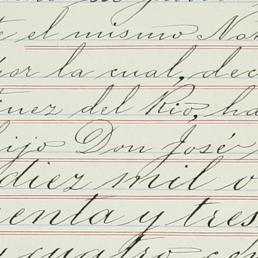 el mismo Not
por la cual, dec
ínez del Rio, ha
hijo Don José
diez mil o
enta y tres
y cuatro cén